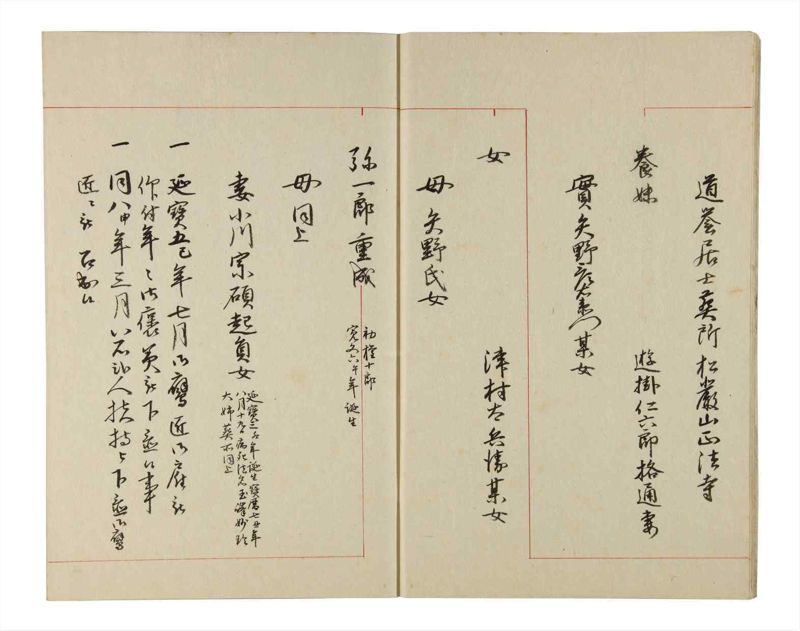 道誉居士葬所松巌山正法寺
養妹
遊掛仁六郎格通妻
實矢野
某女
女
津村太兵衛某女
母矢野氏女
弥一郎重成
初権十郎
寛文六午年誕生
母同上
妻小川宗碩起貞女
延寶三卯年誕生寳暦七丑年
八月十
病死法名玉
妙
大姉葬所同上
一延寶五巳年七月御鷹匠御雇
被
仰付年々御褒美被下置候事
一同八申年三月八石弐人扶持被下置御鷹
匠
被
召出候